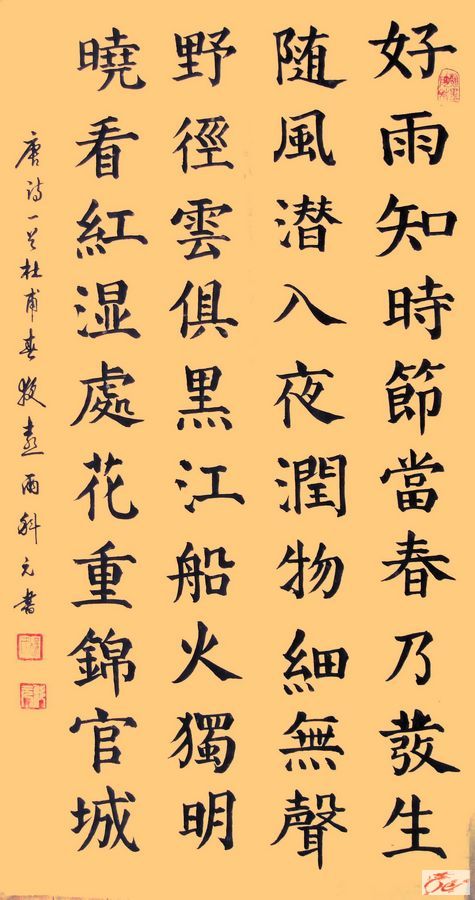 好雨知時節當春乃發生
随風潜入夜潤物細無聲
野徑雲俱黑江船火獨明
曉看紅湿處花重錦官城
唐诗一首杜甫春夜喜雨斛元書